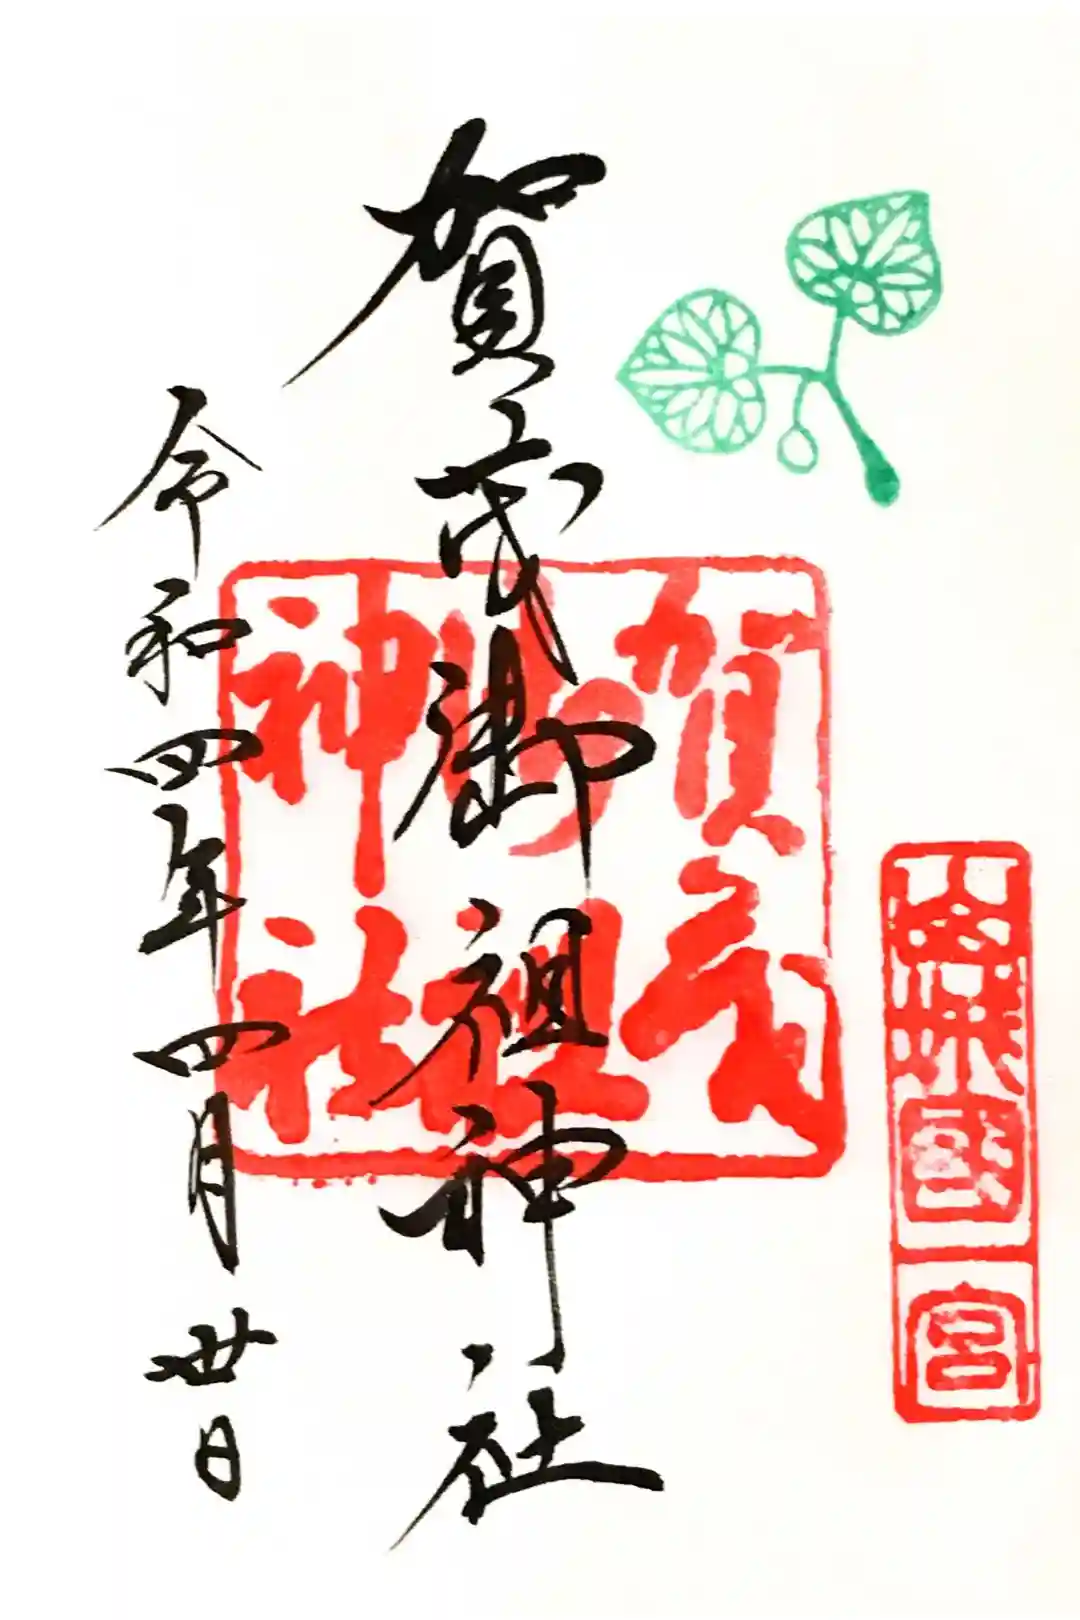 山城國一宮
賀茂御祖神社
賀茂御祖神社
令和四年四月卅日